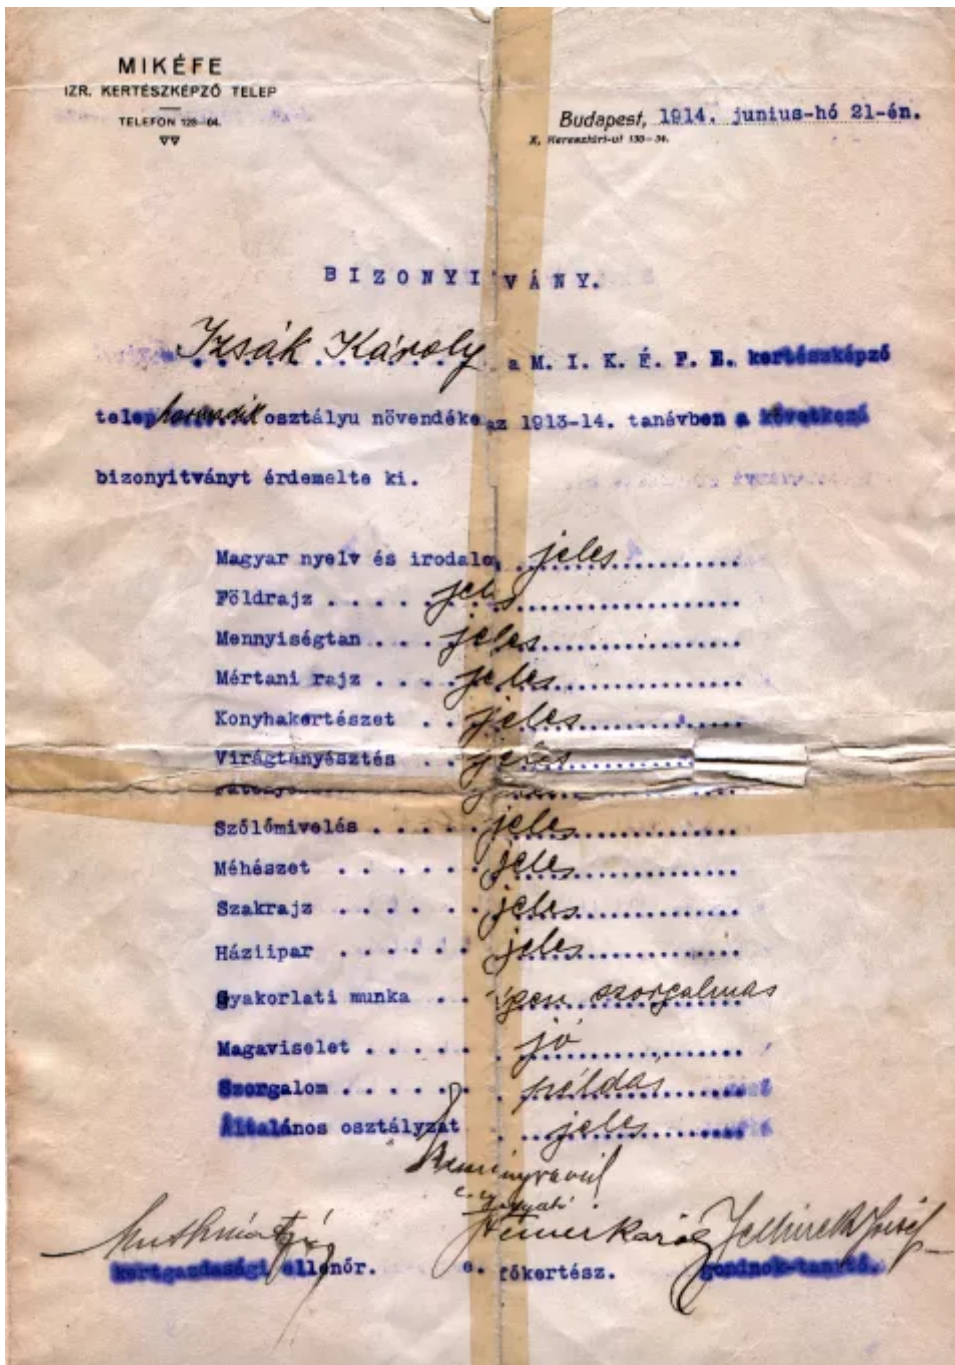 MIKÉFE
IZR. KERTÉSZKÉPZŐ TELEP
TELEFON 128-64.
Budapest, 1914. junius-hó 21-én.
X, Keresztúri-ut 130-34.
BIZONYITVÁNY.
Izsák Károly a M. I. K. É. F. E. kertészképző
telep harmadik osztályu növendéke az 1913-14. tanévben a következő
bizonyitványt érdemelte ki.
Magyar nyelv és irodalo. jeles
Földrajz . . . . jeles
Mennyiségtan . . . jeles
Mértani rajz . . . . jeles
Konyhakertészet . . jeles
Virágtenyésztés . . jeles
Szőlőmivelés . . . . . jeles
Méhészet . . . . . . jeles
Szakrajz . . . . . . jeles
Háziipar . . . . . . jeles
Gyakorlati munka . . igen szorgalmas
Magaviselet . . . . . jó
Szorgalom . . . . . példás
Általános osztályzat . jeles
kertgazdasági ellenőr. e. főkertész. gondnok-tanító.